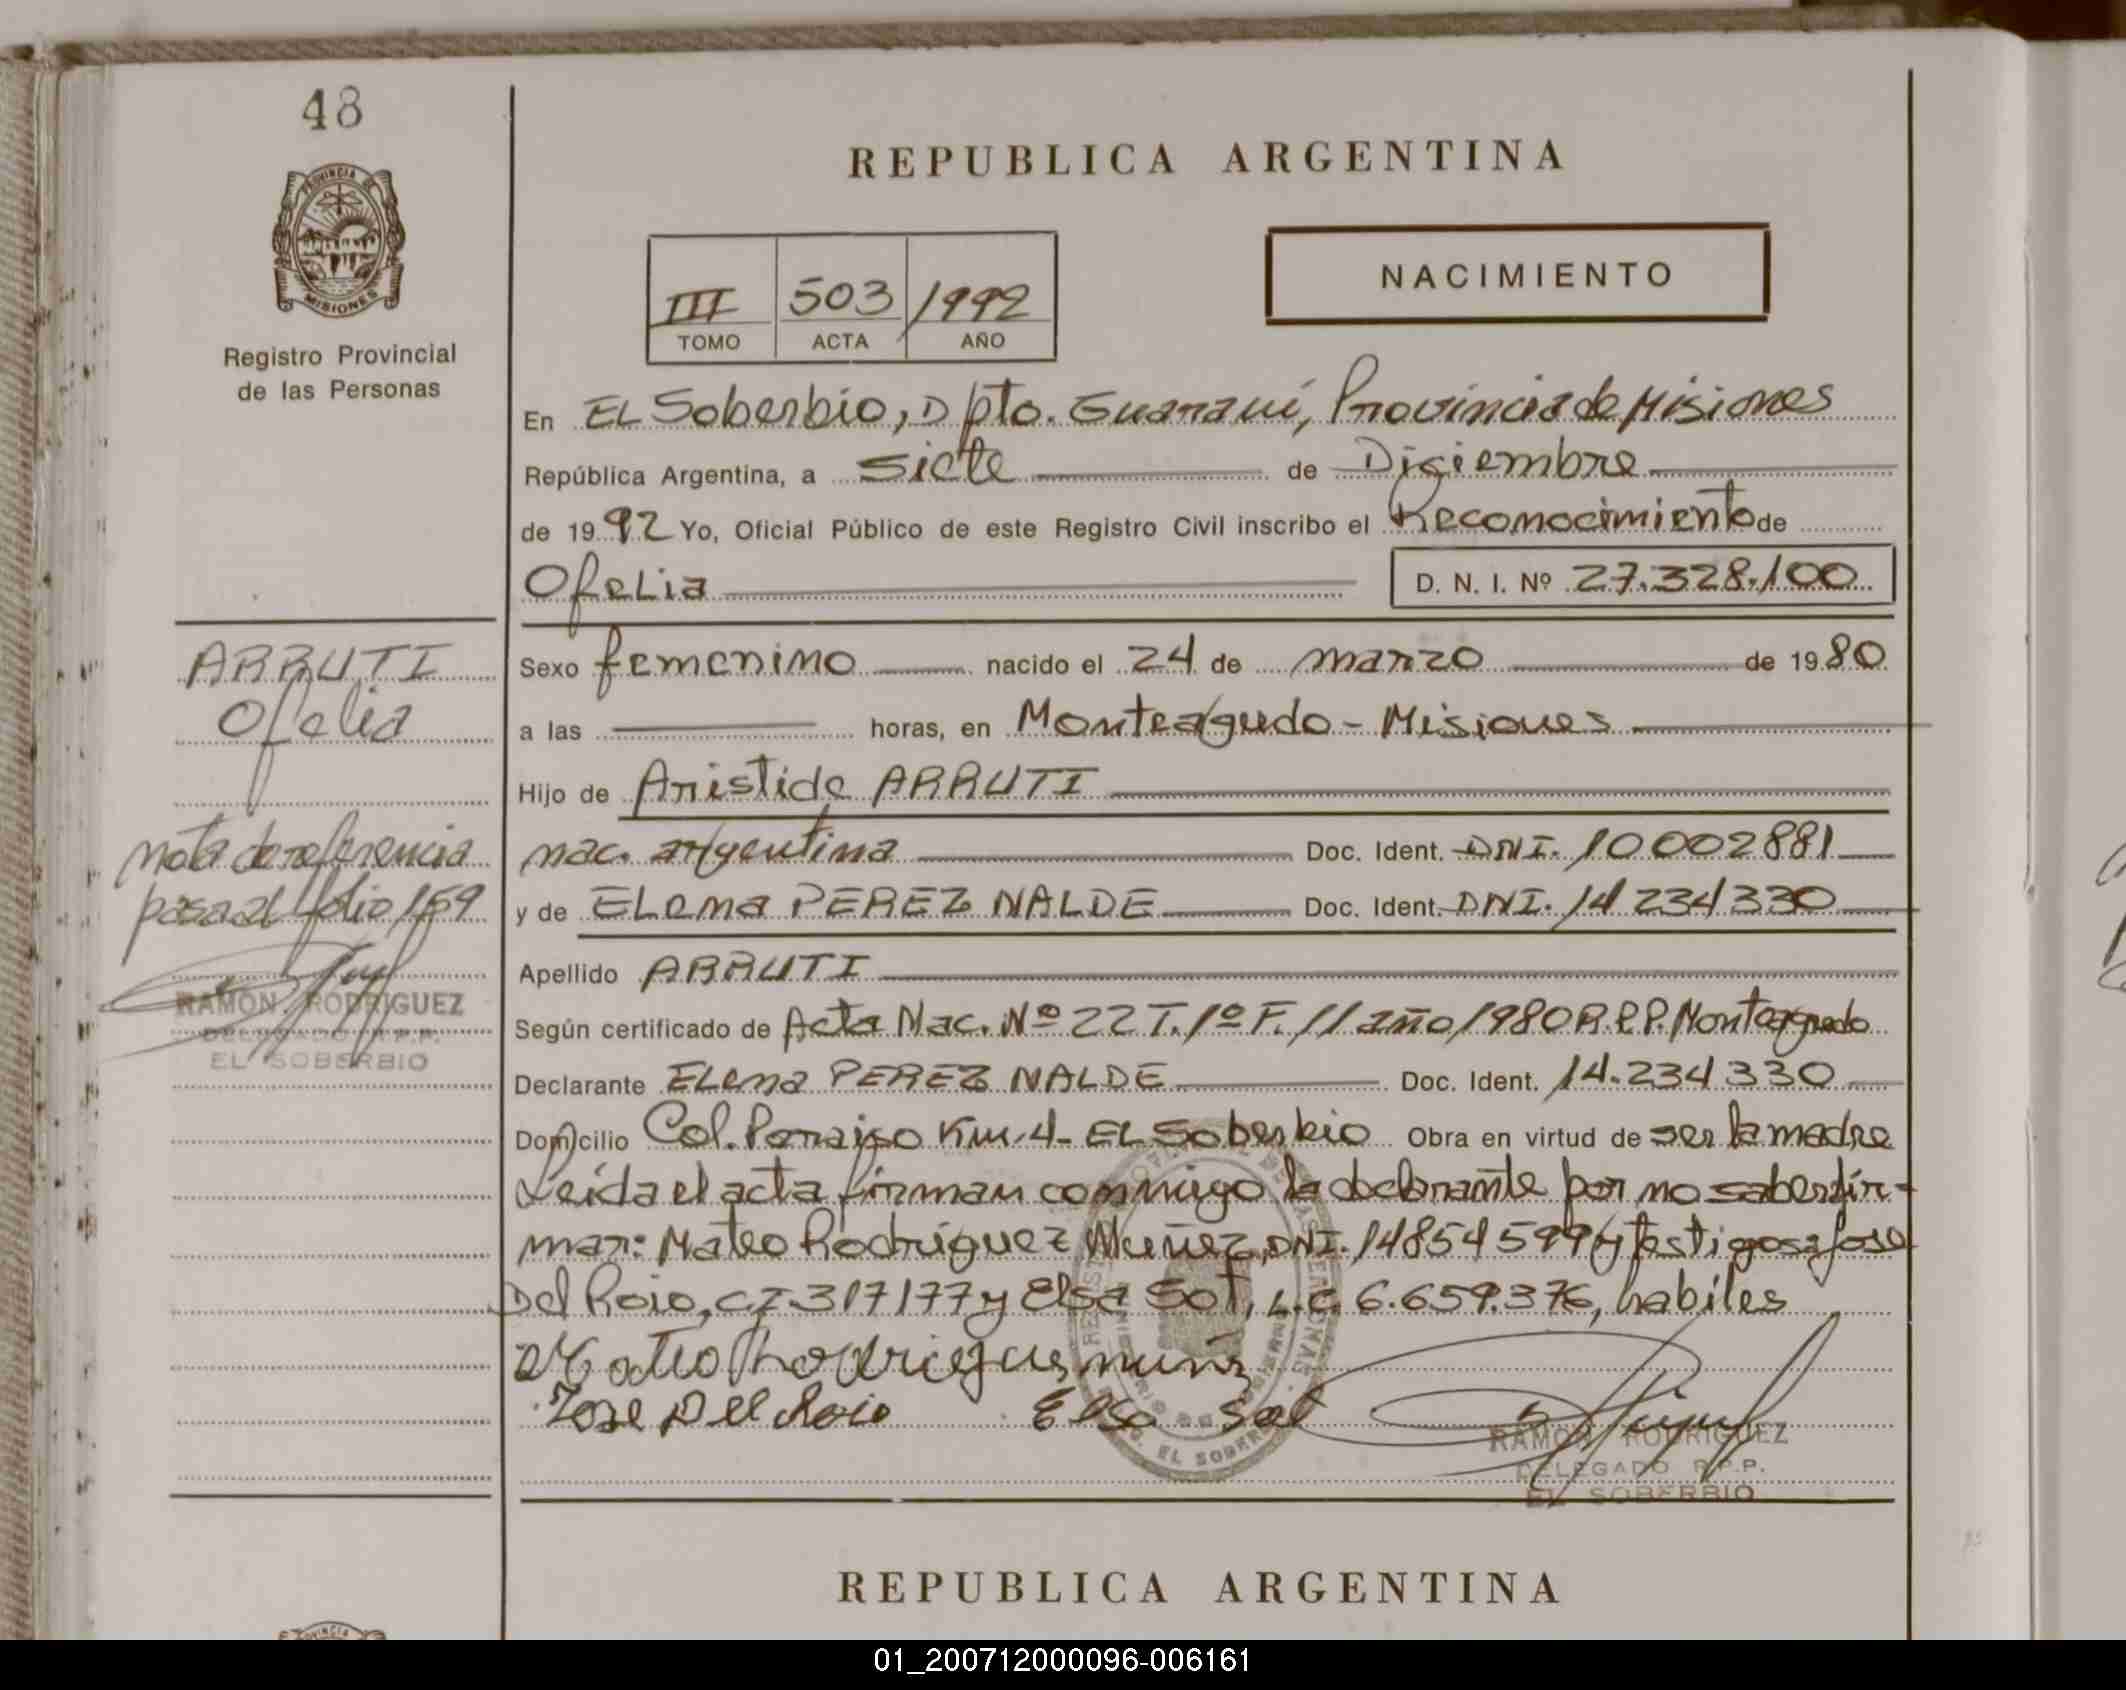 48
PROVINCIA DE
MISIONES
Registro Provincial
de las Personas
REPUBLICA ARGENTINA
III 503 1992
TOMO ACTA AÑO
NACIMIENTO
En EL Soberbio, Dpto. Guaraní, Provincia de Misiones
República Argentina, a Siete de Diciembre
de 1992 Yo, Oficial Público de este Registro Civil inscribo el Reconocimiento de
Ofelia D. N. I. Nº 27.328.100
ARRUTI
Ofelia
nota de referencia
pasa al folio 159
RAMON RODRIGUEZ
DELEGADO R.P.P.
EL SOBERBIO
Sexo femenino nacido el 24 de marzo de 1980
a las horas, en Monteagudo - Misiones
Hijo de Aristide ARRUTI
nac. argentina Doc. Ident. DNI. 10002881
y de ELena PEREZ NALDE Doc. Ident. DNI. 14234330
Apellido ARRUTI
Según certificado de Acta Nac. Nº 22 T. 1º F. 11 año 1980 R.P.P. Monteagudo
Declarante ELena PEREZ NALDE Doc. Ident. 14.234330
Domicilio Col. Paraiso Km. 4 - EL Soberbio Obra en virtud de ser la madre
Leída el acta firman conmigo la declarante por no saber fir-
mar: Mateo Rodriguez Muñez, DNI. 14854599 y testigos: Jose
Del Roio, CI. 317177 y Elsa Sot, L.C. 6.659.376, habiles
Jose Del Roio Elsa Sot
EL SOBERBIO
RAMON RODRIGUEZ
DELEGADO R.P.P.
EL SOBERBIO
REPUBLICA ARGENTINA
PROVINCIA
01_200712000096-006161